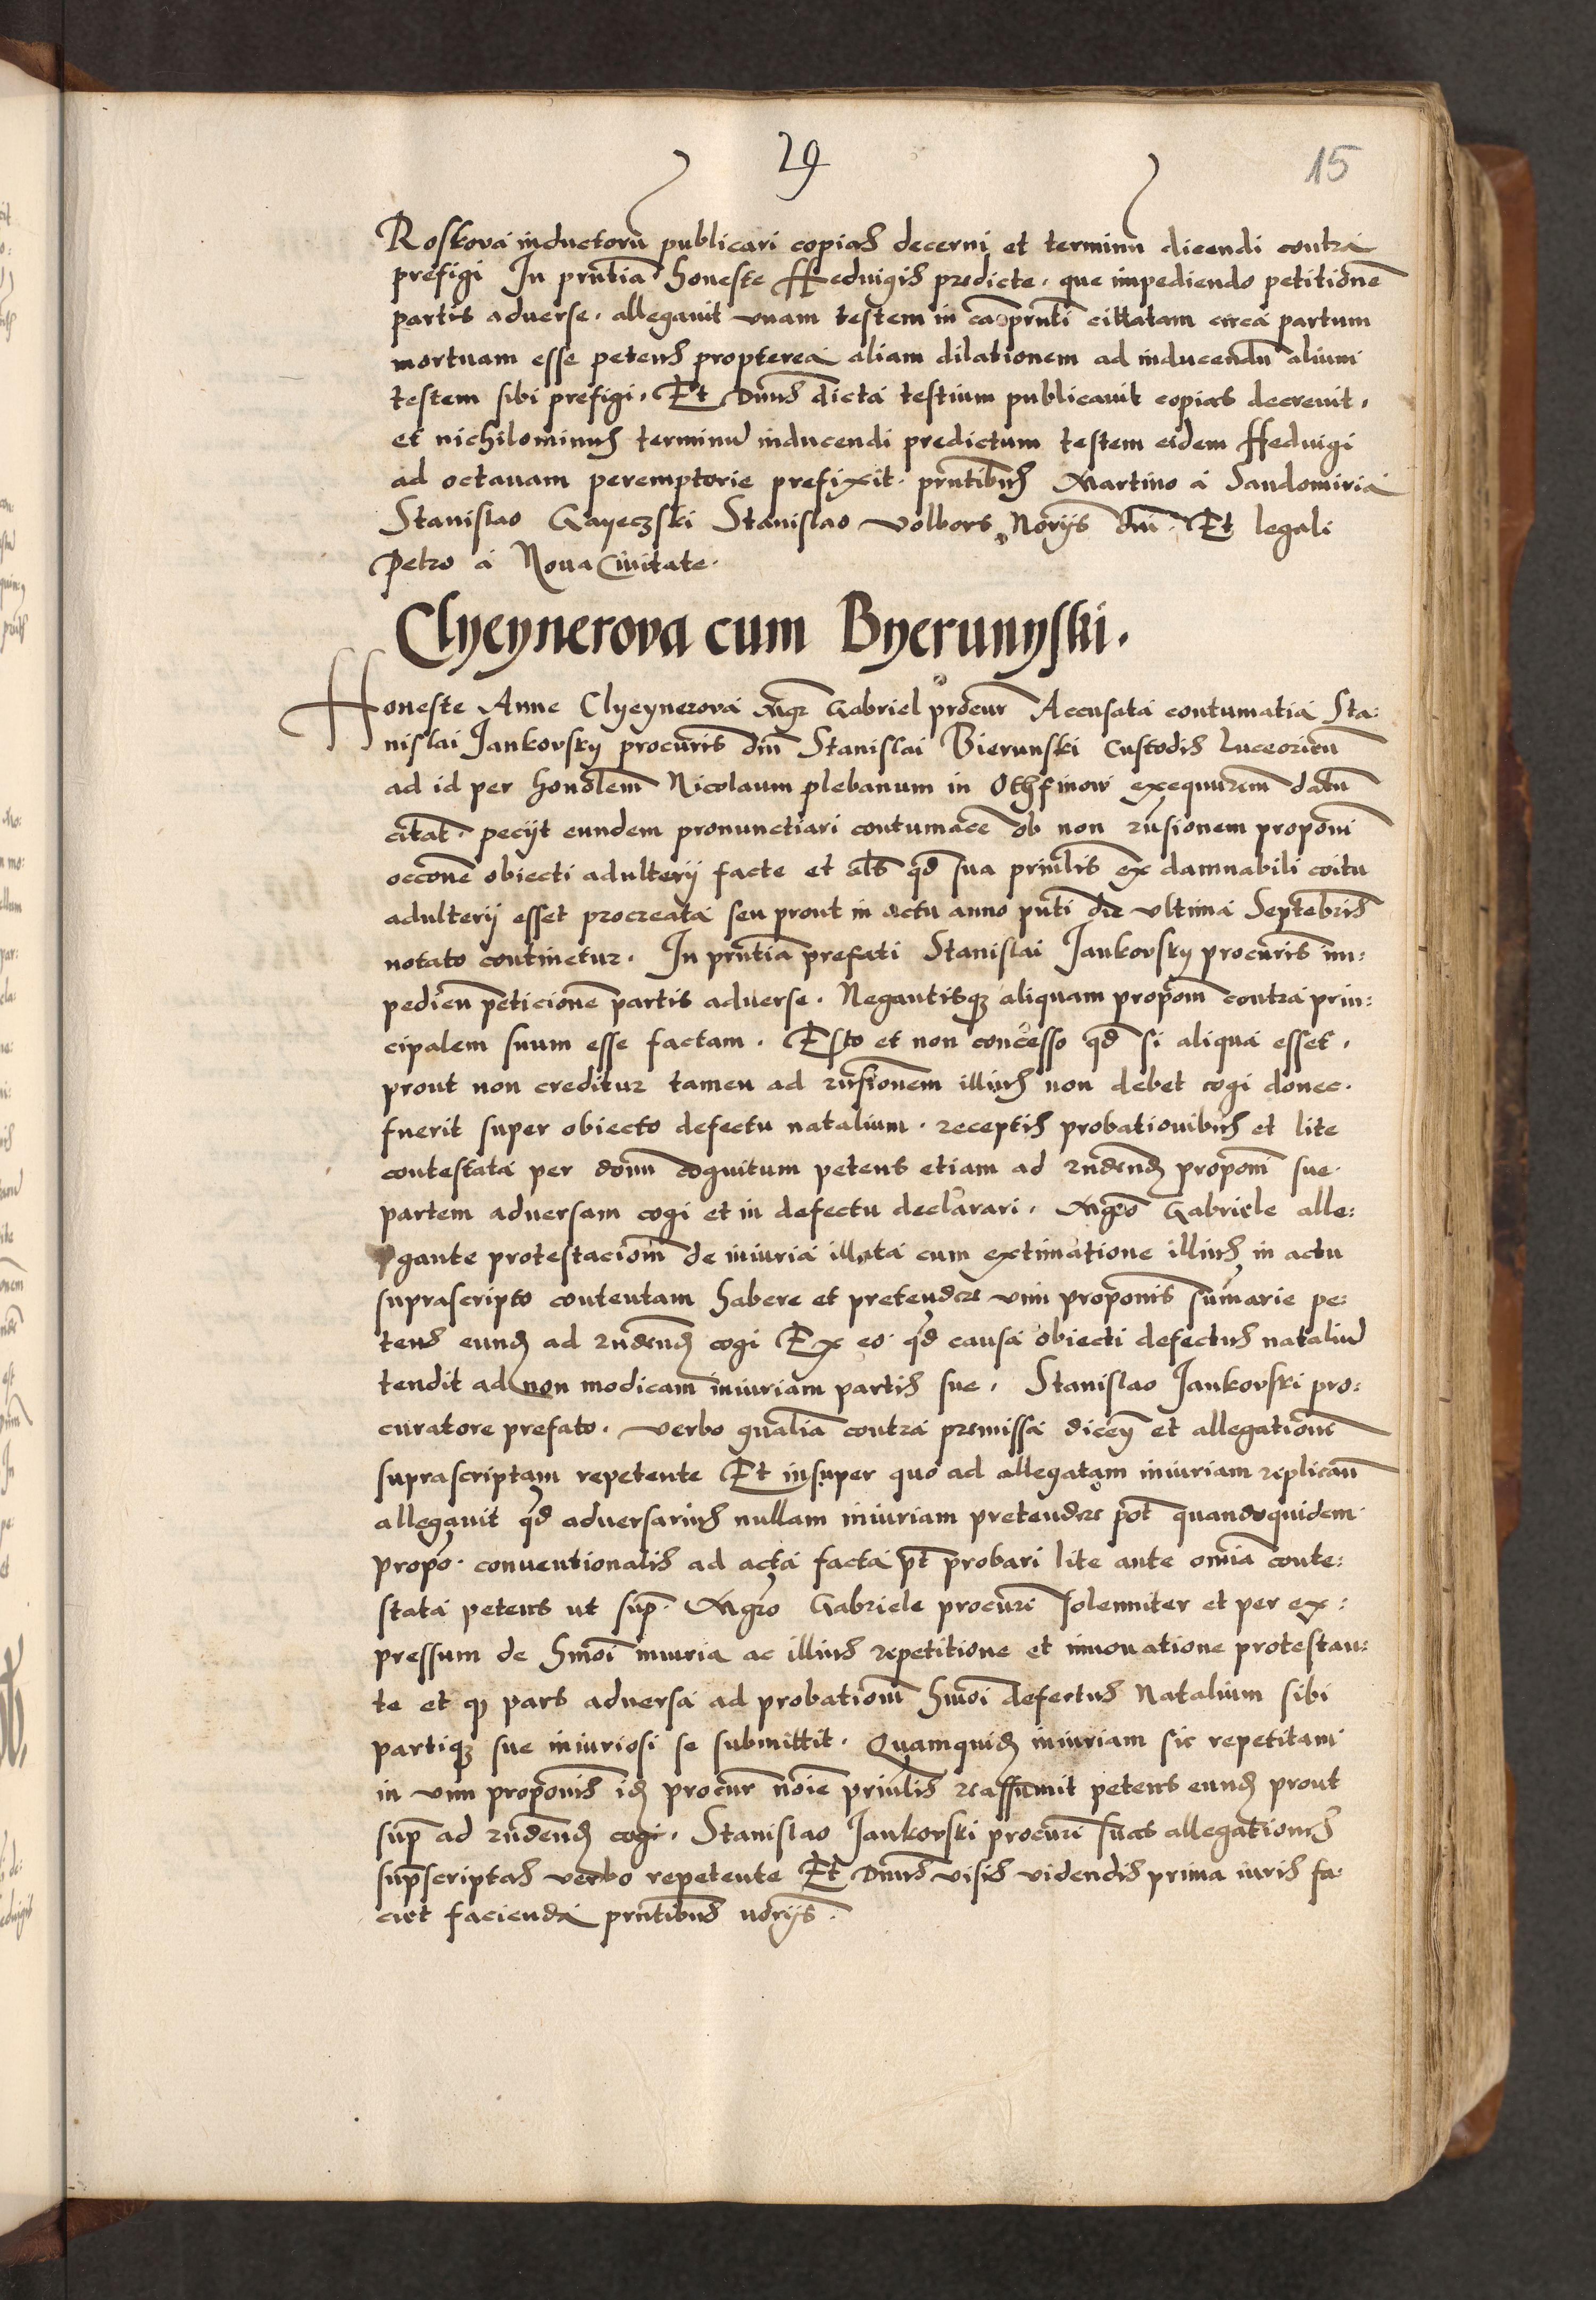 29
15
Roskova inductorū publicari copias decerni et terminū dicendi contra
prefigi In pntia honeste Heduigis predicte. que impediendo petitionē
partis aduerse. allegauit vnam testem in ca pnti cittatam circa partum
mortuam esse petens propterea aliam dilationem ad inducendū alium
testem sibi prefigi. Et Dnus dicta testium publicauit copias decreuit.
et nichilominus terminū inducendi predictum testem eidem Heduigi
ad octauam peremptorie prefixit. pntibus Martino a Sandomiria
Stanislao Gayeczski Stanislao Volbors Norijs dni. Et legali
Petro a Noua Ciuitate.
Clyeynerova cum Byerunyski.
Honeste Anne Clyeynerova Mgr Gabriel procur Accusata contumatia Sta:
nislai Jankovsky procuris dni Stanislai Bierunski Custodis Luceoricn
ad id per honolem Nicolaum plebanum in Othfinow exequutem datū
citat. pecijt eundem pronunctiari contumacē ob non rnsionem proponi
occone obiecti adulterij facte et als qd sua prinlis ex damnabili coitu
adulterij esset procreata seu prout in actu anno pnti die vltima Septēbris
notato continetur. In pntia prefati Stanislai Jankovsky procuris im:
pedien peticionē partis aduerse. Negantisq; aliquam propom contra prin:
cipalem suum esse factam. Esto et non concesso qd si aliqua esset.
prout non creditur tamen ad rnsionem illius non debet cogi donec.
fuerit super obiecto defectu natalium. receptis probationibus et lite
contestata per dnm cognitum petens etiam ad rndend propom sue.
partem aduersam cogi et in defectu declarari. Mgro Gabriele alle:
gante protestaciom de iniuria illata cum extimatione illius in actu
suprascripto contentam habere et pretendere vim proponis sumarie pe:
tens eund ad rndend cogi Ex eo qd causa obiecti defectus nataliū
tendit ad non modicam iniuriam partis sue. Stanislao Jankovski pro:
curatore prefato. verbo gnalia contra premissa dicen et allegationē
suprascriptam repetente Et insuper quo ad allegatam iniuriam replican
allegauit qd aduersarius nullam iniuriam pretendere pot quandoquidem
propo. conuentionalis ad acta facta pt probari lite ante omnia conte:
stata petens ut sup. Mgro Gabriele procuri solenniter et per ex:
pressum de hmoi iniuria ac illius repetitione et innouatione protestan:
te et q pars aduersa ad probationem hmoi defectus Natalium sibi
partiq; sue iniuriosi se submittit. Quamquid iniuriam sic repetitam
in vim proponis id procur noie prinlis reassumit petens eund prout
sup ad rndend cogi. Stanislao Jankovski procuri suas allegationes
supscriptas verbo repetente Et Dnus visis videndis prima iuris fa:
ciet facienda pntibus norijs.